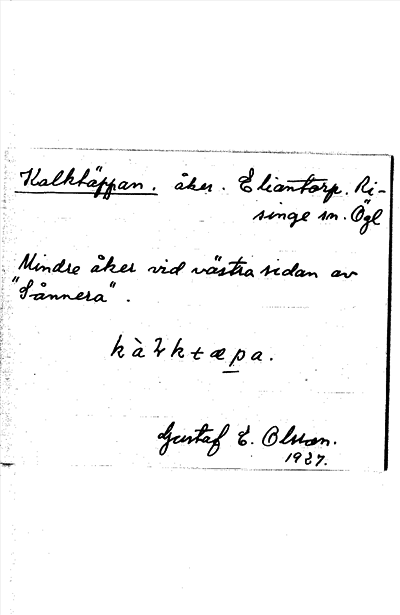 Kalktäppan. åker. Eliantorp. Ri-
singe sn. Ögl
Mindre åker vid västra sidan av
"Sånnera".
kàƚktæpa.
Gustaf E. Olsson.
1927.